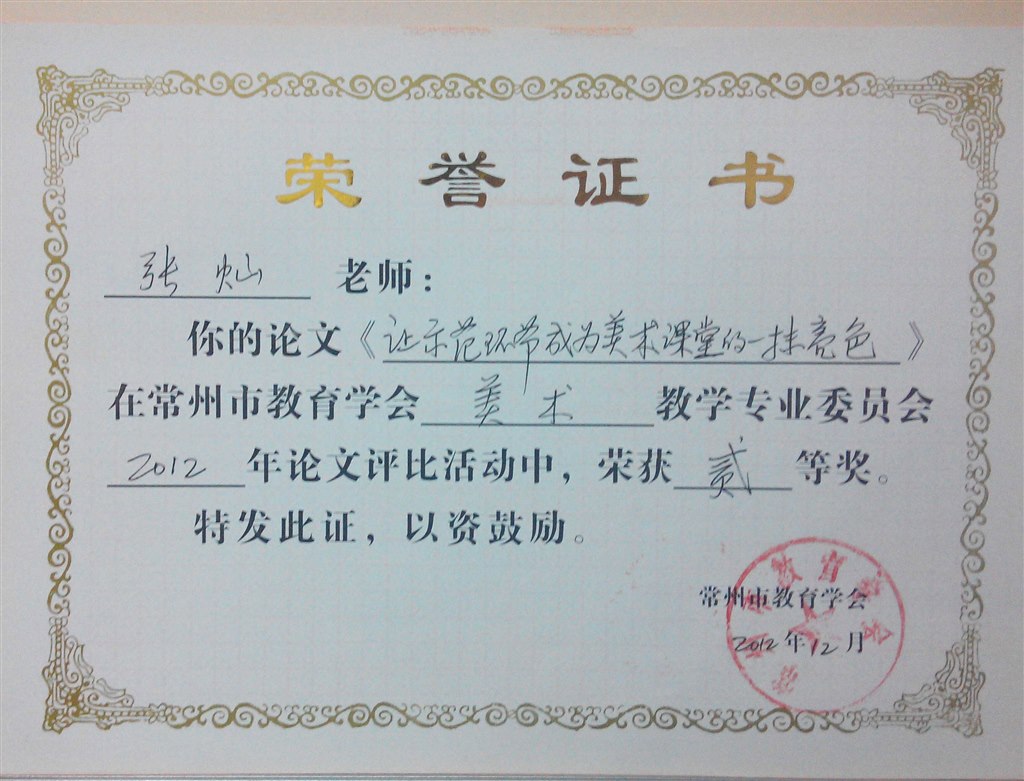 荣誉证书
张灿 老师：
你的论文《让示范环节成为美术课堂的一抹亮色》
在常州市教育学会 美术 教学专业委员会
2012 年论文评比活动中，荣获 贰 等奖。
特发此证，以资鼓励。
常州市教育学会
2012年12月
常州市教育学会